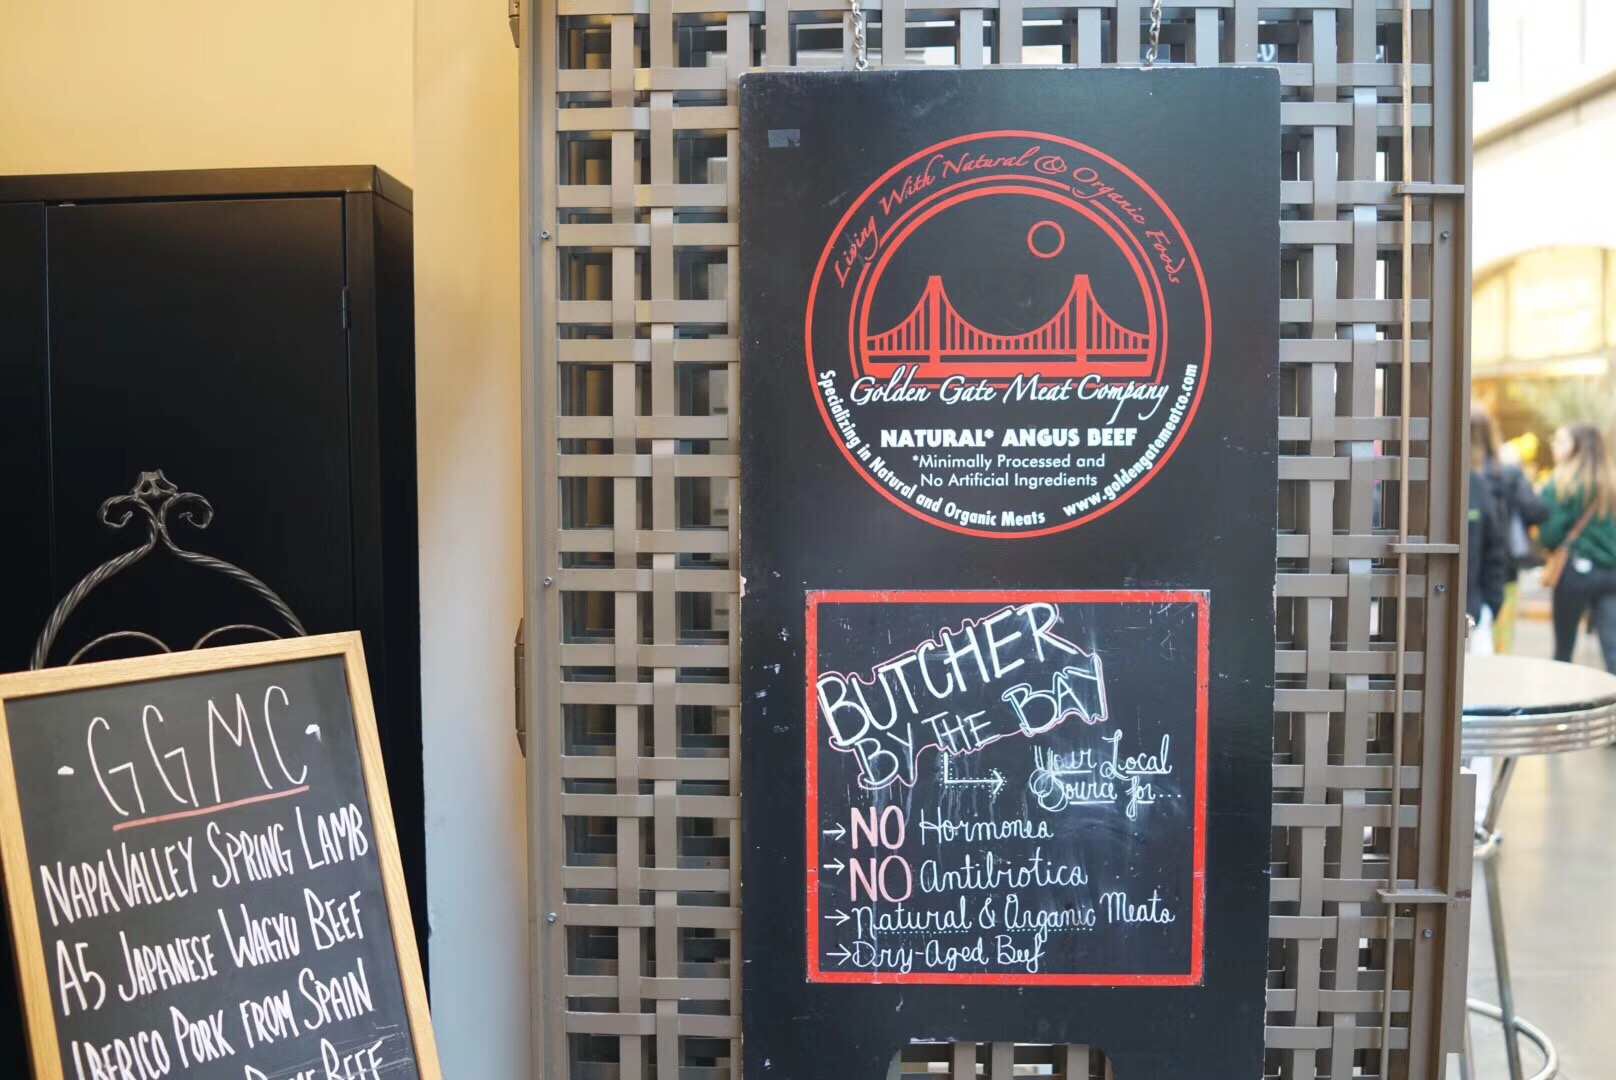 Living With Natural & Organic Foods
Golden Gate Meat Company
NATURAL* ANGUS BEEF
*Minimally Processed and
No Artificial Ingredients
Specializing in Natural and Organic Meats
www.goldengatemeatco.com
BUTCHER
BY THE BAY
Your Local
Source for...
→NO Hormones
→NO Antibiotics
→Natural & Organic Meats
→Dry-Aged Beef
·GGMC·
NAPA VALLEY SPRING LAMB
A5 JAPANESE WAGYU BEEF
IBERICO PORK FROM SPAIN
BEEF